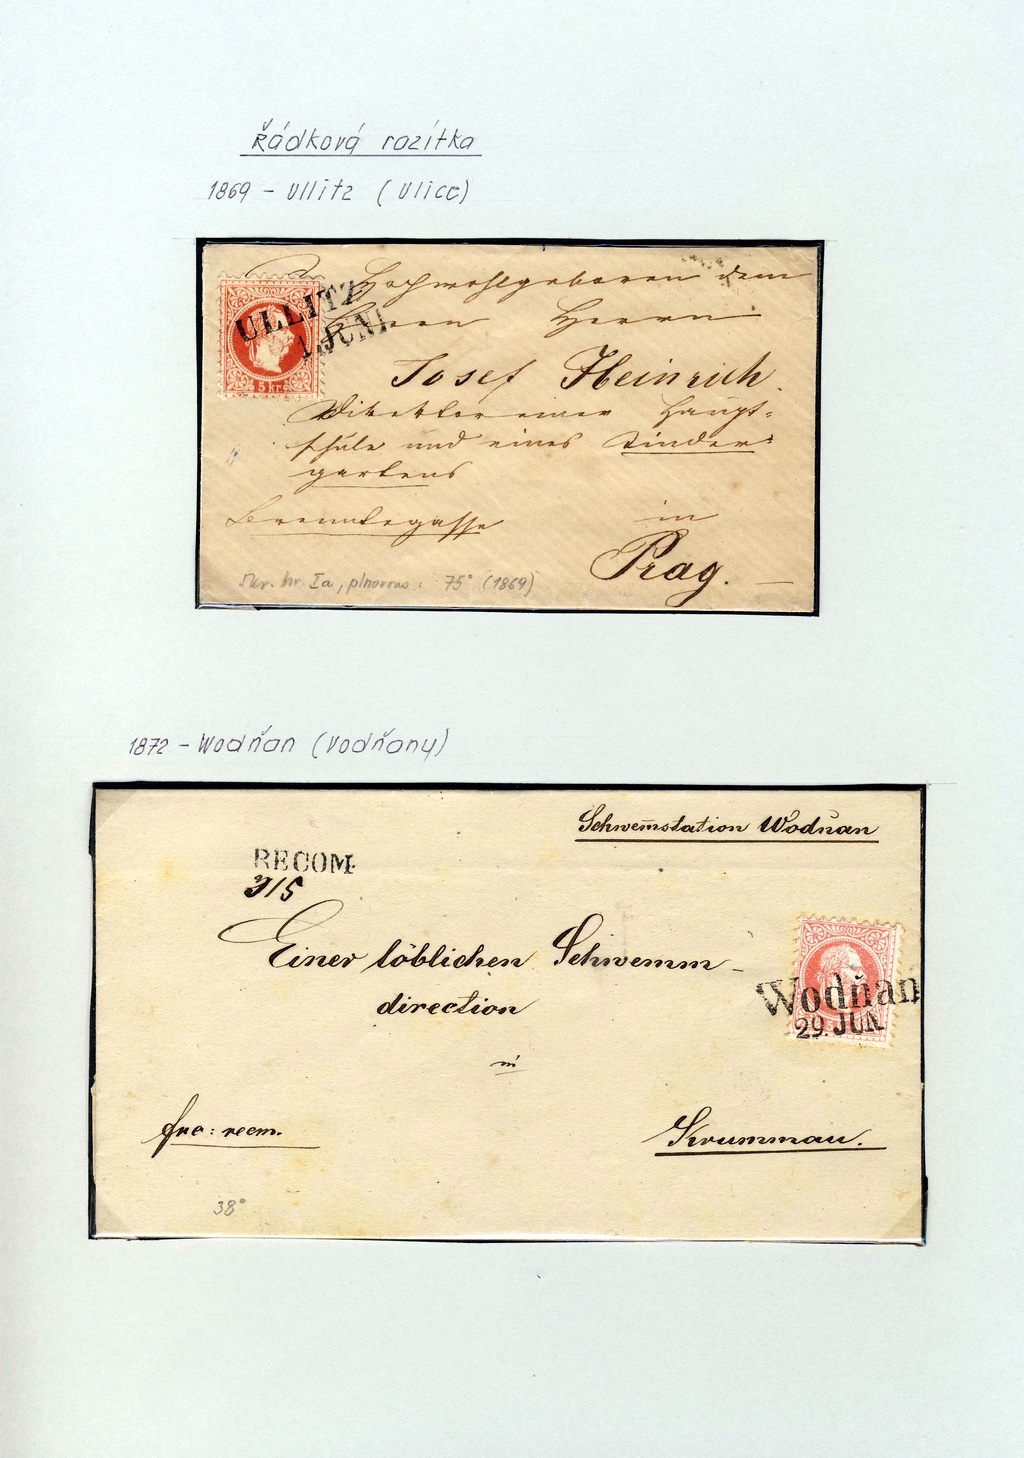 Řádková razítka
1869 - Ullitz (Ulice)
ULLITZ
1. JUNI
5 kr
Hochwohlgeboren dem
Herrn Herrn
Josef Heinrich
Direktor einer Haupt-
schule und eines Kinder-
gartens
in
Prag.
Ia, 75° (1869)
1872 - Wodňan (Vodňany)
Schwem̄station Wodňan
RECOM.
315
Einer löblichen Schwemm-
direction
Wodňan
29. JUN
in
fro: recm.
Krummau.
38°